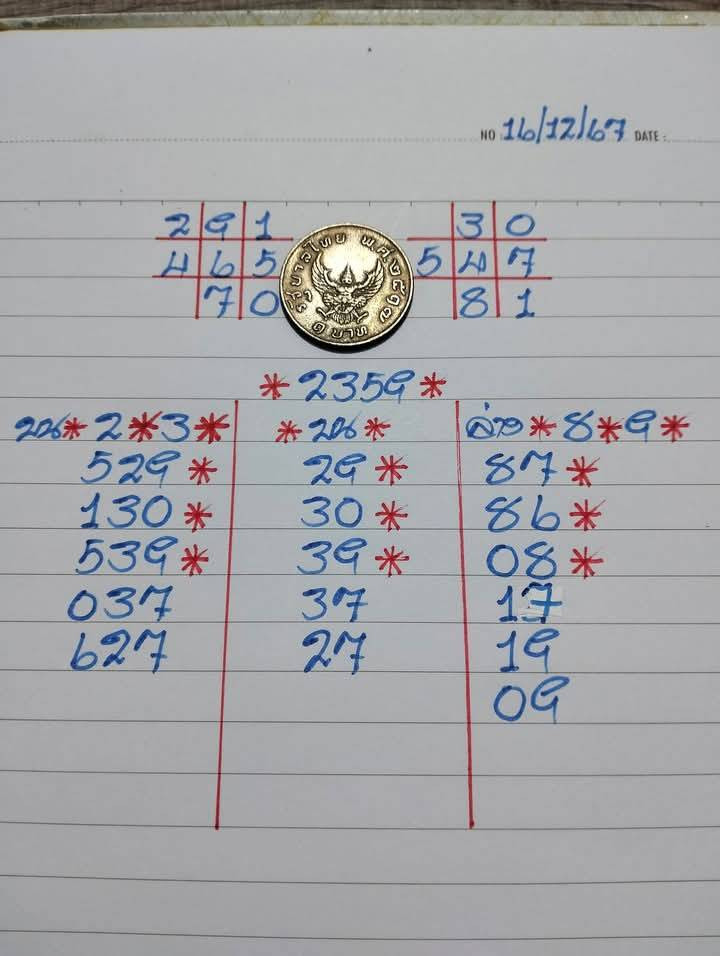 NO 16/12/67 DATE :
2 9 1
4 6 5
7 0
รัฐบาลไทย พ.ศ.๒๕๑๗
๑ บาท
3 0
5 4 7
8 1
* 2359 *
บน * 2 * 3 *
529 *
130 *
539 *
037
627
* บน *
29 *
30 *
39 *
37
27
ล่าง * 8 * 9 *
87 *
86 *
08 *
17
19
09